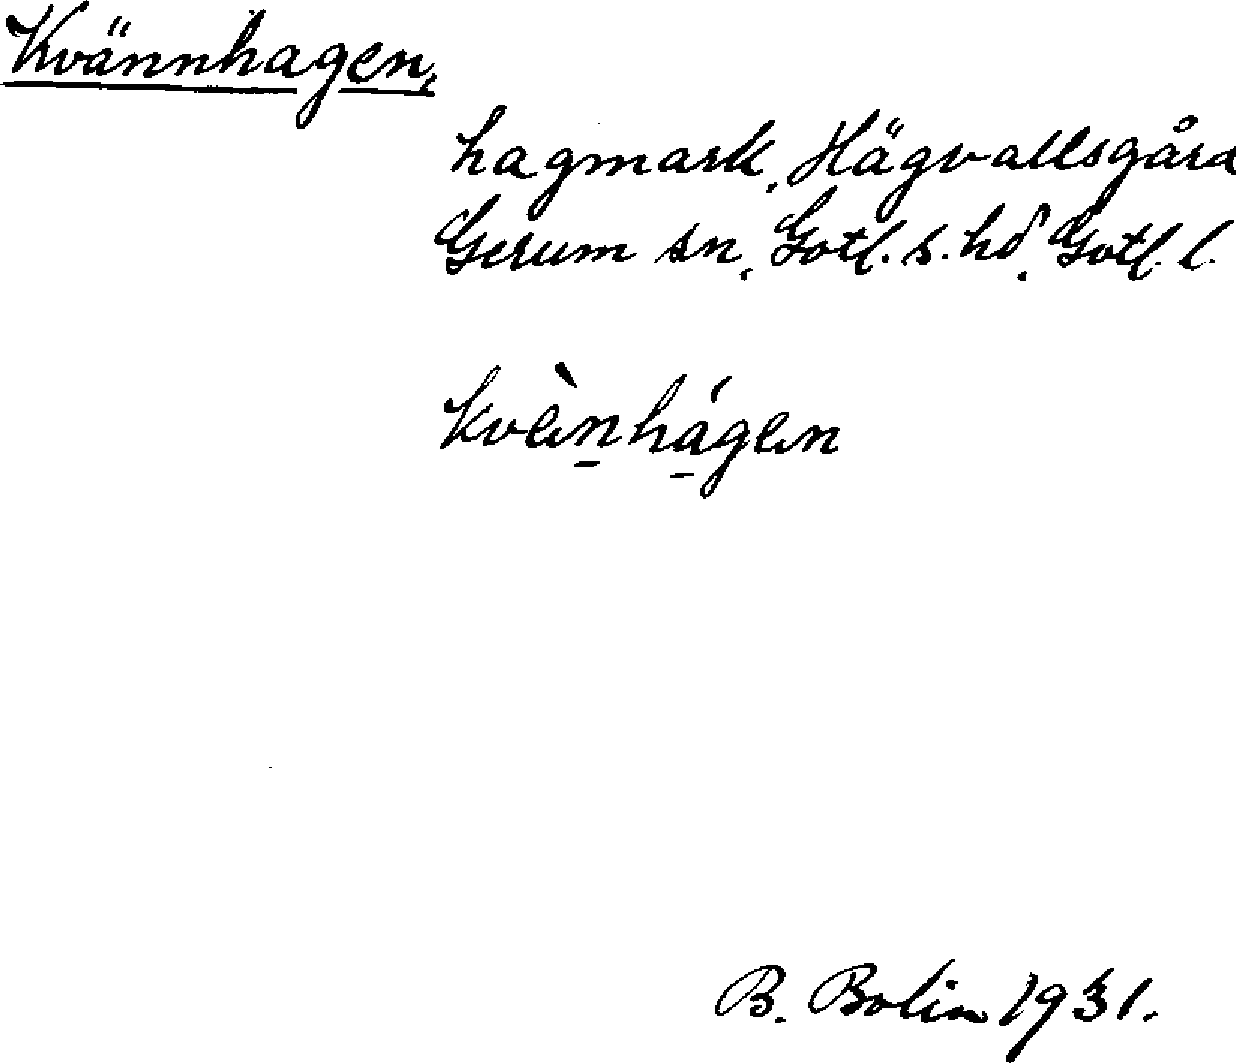 Kvännhagen,
hagmark, Hägvallsgård
Gerum sn, Gotl. s. hd, Gotl. l.
kvèinhágen
B. Bolin 1931.